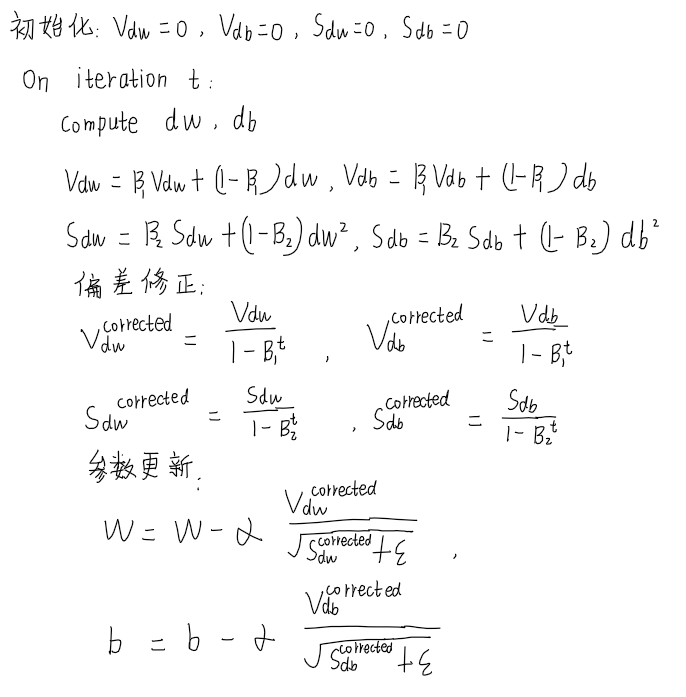 初始化: V_dw = 0 , V_db = 0 , S_dw = 0 , S_db = 0
On iteration t:
compute dw , db
V_dw = β₁ V_dw + (1-β₁) dw , V_db = β₁ V_db + (1-β₁) db
S_dw = β₂ S_dw + (1-β₂) dw² , S_db = β₂ S_db + (1-β₂) db²
偏差修正:
V_dw^corrected = V_dw / (1-β₁^t) , V_db^corrected = V_db / (1-β₁^t)
S_dw^corrected = S_dw / (1-β₂^t) , S_db^corrected = S_db / (1-β₂^t)
参数更新:
W = W - α V_dw^corrected / √(S_dw^corrected + ε) ,
b = b - α V_db^corrected / √(S_db^corrected + ε)